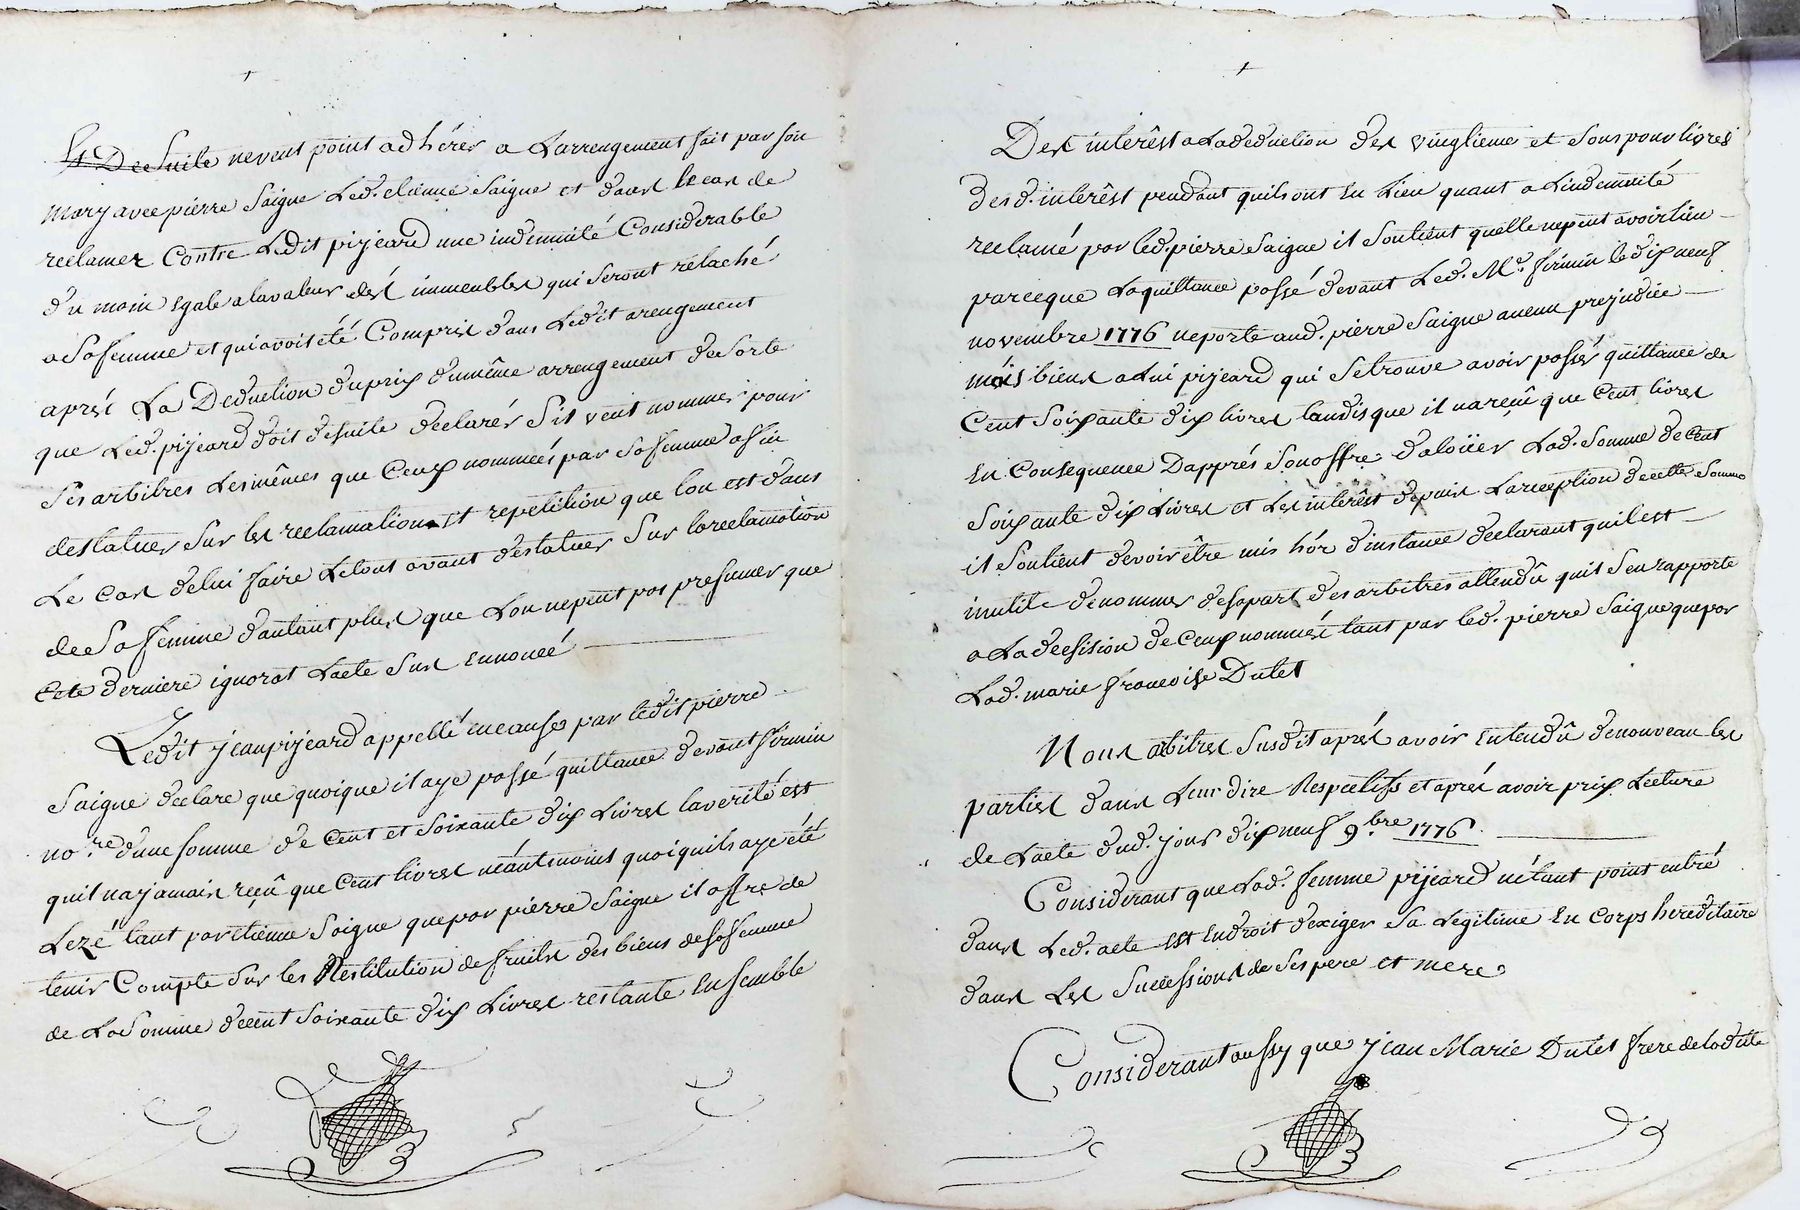 Et De Suite neveut point adhérer a Larrengement fait par son
mary avec pierre Saigne Led. etienne Saigne est dans le cas de
reclamer Contre Ledit pijeard une indemnité Considerable
du moin Egale alavaleur des immeubles qui seront rélaché
a Sa femme et qui avoit été Compris dans Ledit arengement
aprés La Deduction du prix du même arrengement de Sorte
que Led. pijeard doit desuite declarér Sil veut nommer pour
Ses arbitres Les mêmes que Ceux nommées par Sa femme afin
destatuer Sur les reclamations et repetition que lon est dans
Le Cas delui faire Letout avant destatuer Sur la reclamation
de Sa femme dautant plus que Lon nepeut pas presumer que
Cete derniere ignorat Lacte Sus Ennoncé
Ledit jean pijeard appellé encause par ledit pierre
Saigne declare que quoique il aye passé quittance devant firmin
no.re dune somme de Cent et Soixante dix Livres laverité est
quil na jamais reçû que Cent livres néantmoins quoiquil aye été
Lezé tant par etienne Saigne que par pierre Saigne il offre de
tenir Compte Sur les Restitution de fruits des biens de sa femme
de La Somme decent Soixante dix Livres restante Ensemble
Des intérêst a La deduction des vinglieme et Sous pour livres
des d. intérêst pendant quils ont Eu Lieu quant a Lindemnité
reclamé par led. pierre Saigne il Soutient quelle nepeut avoir lieu
parceque La quittance passé devant Led. Me. firmin le dix neuf
novembre 1776 neporte aud. pierre Saigne aucun prejudice
mais biens a Lui pijeard qui Setrouve avoir passés quittance de
Cent Soixante dix livres tandis que il na reçû que Cent livres
En Consequence Dapprés Son offre dalouër Lad. Somme de Cent
Soixante dix Livres et Les intérêst depuis Larception decelle Somme
il Soutient devoir être mis hór dinstance declarant quil est
inutile denommer desapart des arbitres attendû quil Sen rapporte
a La decision de Ceux nommés tant par led. pierre Saigne que par
Lad. marie francoise Dulet
Nous abitres Susdit aprés avoir Entendû denouveau les
parties dans Leur dire Respectifs et aprés avoir prix Lecture
de Lacte dud. jour dix neuf 9.bre 1776
Considerant que Lad. femme pijeard nétant point entré
dans Led. acte est En droit dexiger Sa Légitime En Corps hereditaire
dans Les Successions de Ses pere et mere
Considerant aussy que jean Marie Dulet frere de ladite